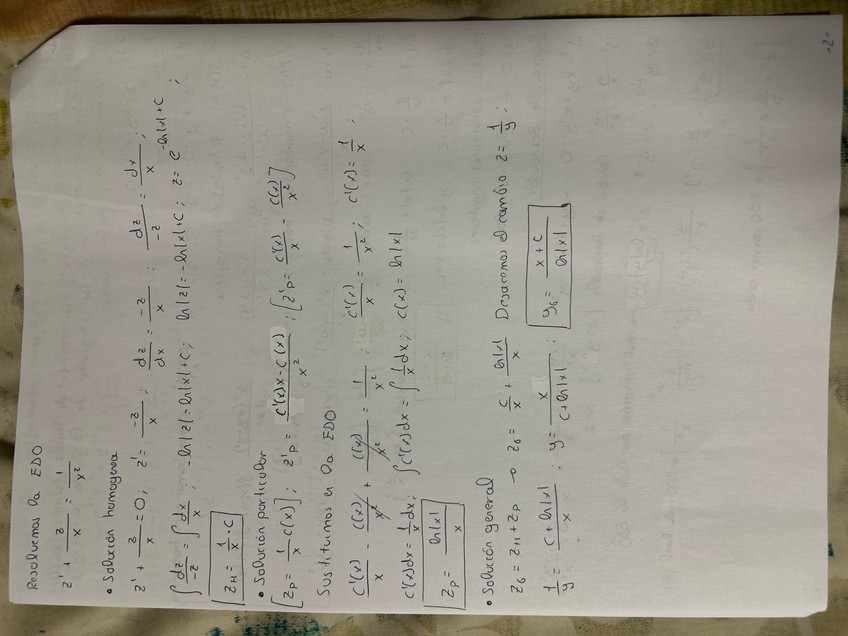 Resolvemos la EDO
z' + z/x = 1/x²
• Solución homogenea
z' + z/x = 0; z' = -z/x; dz/dx = -z/x; dz/-z = dx/x;
∫dz/-z = ∫dx/x; -ln|z| = ln|x| + C; ln|z| = -ln|x| + C; z = e^(-ln|x| + C);
z_H = 1/x · C
• Solución particular
[z_p = 1/x C(x)]; z'_p = (C'(x)x - C(x))/x²; [z'_p = C'(x)/x - C(x)/x²]
Sustituimos en la EDO
C'(x)/x - C(x)/x² + C(x)/x² = 1/x²; C'(x)/x = 1/x²; C'(x) = 1/x;
C'(x)dx = 1/x dx; ∫C'(x)dx = ∫1/x dx; C(x) = ln|x|
z_p = ln|x|/x
• Solución general
z_G = z_H + z_p → z_G = C/x + ln|x|/x Desacemos el cambio z = 1/y;
1/y = (C + ln|x|)/x; y = x/(C + ln|x|); y_G = (x + C)/ln|x|
-2-